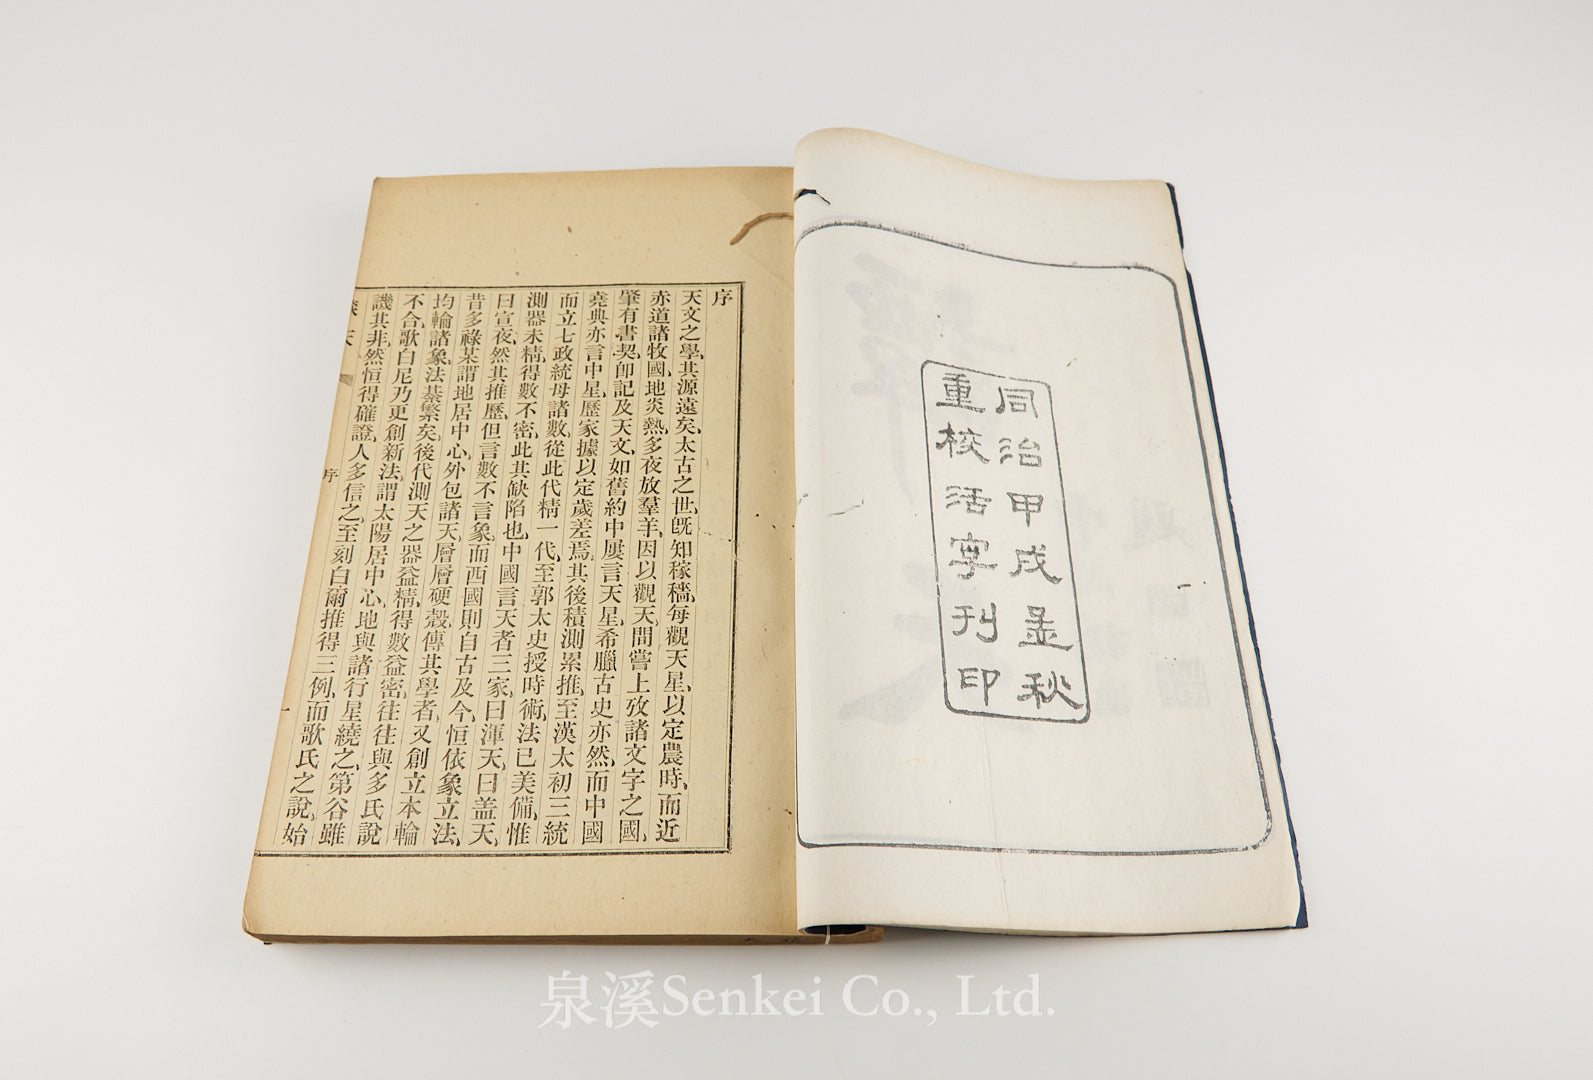 同治甲戌孟秋
重校活字刊印
序
天文之學、其源遠矣、太古之世、旣知稼穡、每觀天星、以定農時、而近
赤道諸牧國、地炎熱、多夜放羣羊、因以觀天間嘗上攷諸文字之國、
肇有書契、卽記及天文、如舊約中屢言天星、希臘古史亦然、而中國
堯典亦言中星、歷家據以定歲差焉、其後積測累推、至漢太初三統
而立七政統母諸數、從此代精一代、至郭太史授時術、法已美備、惟
測器未精、得數不密、此其缺陷也、中國言天者三家、曰渾天、曰盖天、
曰宣夜、然其推歷、但言數不言象、而西國則自古及今、恒依象立法、
昔多祿某謂地居中心、外包諸天、層層硬殼、傳其學者、又創立本輪
均輪諸象、法綦繁矣、後代測天之器益精、得數益密、往往與多氏說
不合、歌白尼乃更創新法、謂太陽居中心、地與諸行星繞之、第谷雖
譏其非、然恒得確證、人多信之、至刻白爾推得三例、而歌氏之說、始
序
泉溪Senkei Co., Ltd.